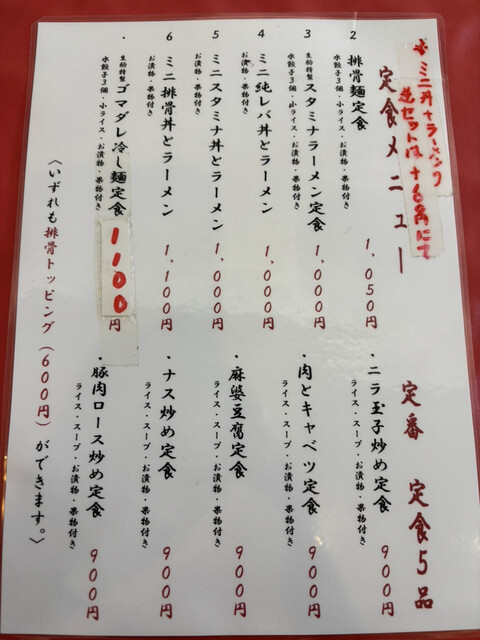 ＊ミニ丼+ラーメンの
逆セットは+60円にて
定食メニュー
2 排骨麺定食
水餃子3個・小ライス・お漬物・果物付き
1,050円
3 生駒特製 スタミナラーメン定食
水餃子3個・小ライス・お漬物・果物付き
1,000円
4 ミニ純レバ丼とラーメン
お漬物・果物付き
1,000円
5 ミニスタミナ丼とラーメン
お漬物・果物付き
1,000円
6 ミニ排骨丼とラーメン
お漬物・果物付き
1,100円
・生駒特製 ゴマダレ冷し麺定食
水餃子3個・小ライス・お漬物・果物付き
1100円
定番 定食5品
・ニラ玉子炒め定食
ライス・スープ・お漬物・果物付き
900円
・肉とキャベツ定食
ライス・スープ・お漬物・果物付き
900円
・麻婆豆腐定食
ライス・スープ・お漬物・果物付き
900円
・ナス炒め定食
ライス・スープ・お漬物・果物付き
900円
・豚肉ロース炒め定食
ライス・スープ・お漬物・果物付き
900円
〈いずれも排骨トッピング(600円)ができます。〉